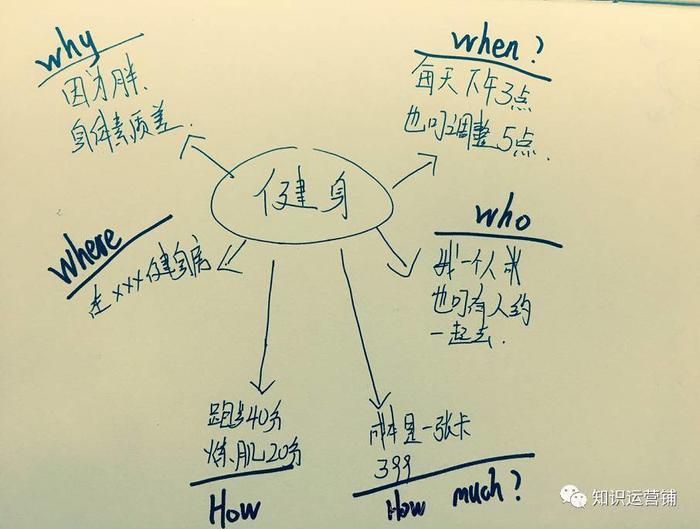 why
因为胖、
身体素质差.
when?
每天下午3点
也可调整5点.
健身
where
在xxx健身房
who
我一个人或
也可有人约
一起去.
跑步40分
炼肌20分
How
成本是一张卡
399
How much?
知识运营铺